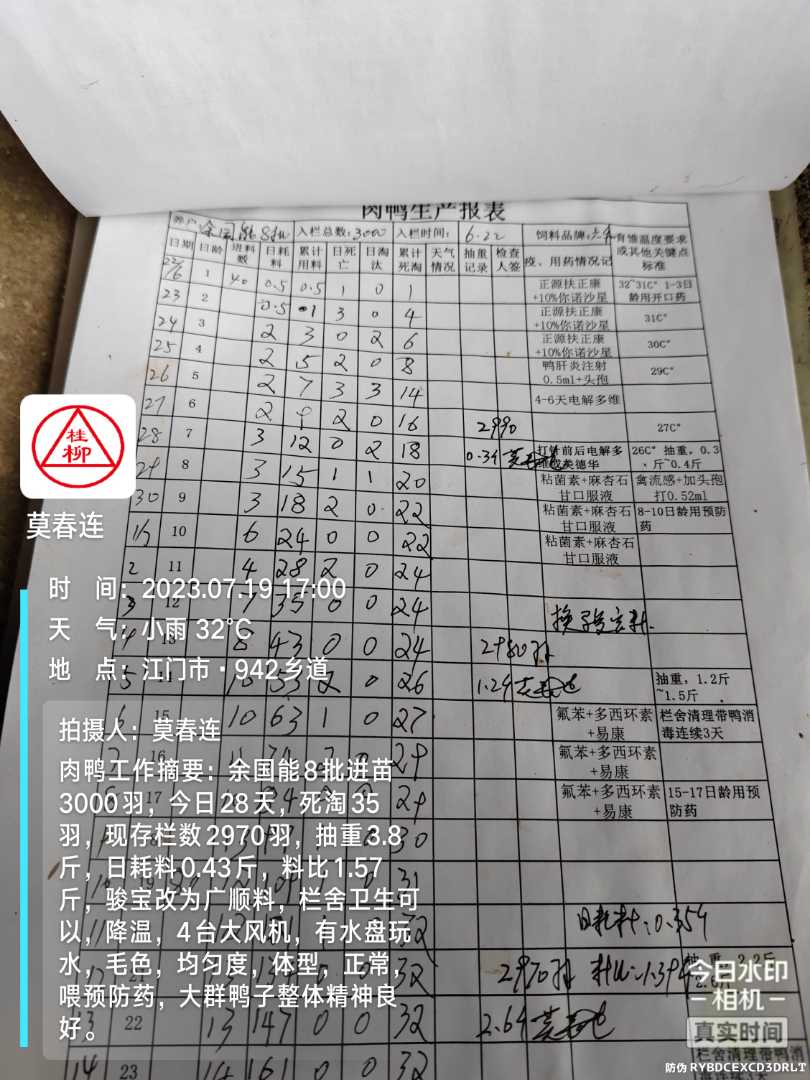 肉鸭生产报表
养户 余国能8批 入栏总数:3000 入栏时间: 6.22 饲料品牌: 育雏温度要求或其他关键点标准
日期 日龄 进料数 日耗料 累计用料 日死亡 日淘汰 累计死淘 天气情况 抽重记录 检查人签 疫、用药情况记
22/6 1 40 0.5 0.5 1 0 1 正源扶正康+10%你诺沙星 32~31C° 1-3日龄用开口药
23 2 0.5 1 3 0 4 正源扶正康+10%你诺沙星 31C°
24 3 2 3 0 2 6 正源扶正康+10%你诺沙星 30C°
25 4 2 5 2 0 8 鸭肝炎注射0.5ml+头孢 29C°
26 5 2 7 3 3 14 4-6天电解多维
27 6 2 9 2 0 16 2990 27C°
28 7 3 12 0 2 18 0.34 打针前后电解多 26C° 抽重,0.3斤~0.4斤
29 8 3 15 1 1 20 粘菌素+麻杏石甘口服液 禽流感+加头孢打0.52ml
30 9 3 18 2 0 22 粘菌素+麻杏石甘口服液 8-10日龄用预防药
1/7 10 6 24 0 0 22 粘菌素+麻杏石甘口服液
2 11 4 28 2 0 24
3 12 7 35 0 0 24
4 13 8 43 0 0 24 2980羽
5 10 53 2 0 26 1.24 抽重,1.2斤~1.5斤
6 15 10 63 1 0 27 氟苯+多西环素+易康 栏舍清理带鸭消毒连续3天
7 16 0 29 氟苯+多西环素+易康
17 0 29 氟苯+多西环素+易康 15-17日龄用预防药
30
19 0 31
32 日耗料:0.354
21 0 32 2970羽 料比:1.394
13 22 13 147 0 0 32 2.64
14 23 14 161 0 0 32 栏舍清理带鸭消
桂柳
莫春连
时 间：2023.07.19 17:00
天 气：小雨 32℃
地 点：江门市·942乡道
拍摄人：莫春连
肉鸭工作摘要：余国能8批进苗
3000羽，今日28天，死淘35
羽，现存栏数2970羽，抽重3.8
斤，日耗料0.43斤，料比1.57
斤，骏宝改为广顺料，栏舍卫生可
以，降温，4台大风机，有水盘玩
水，毛色，均匀度，体型，正常，
喂预防药，大群鸭子整体精神良
好。
今日水印
相机
真实时间
防伪 RYBDCEXCD3DRLT